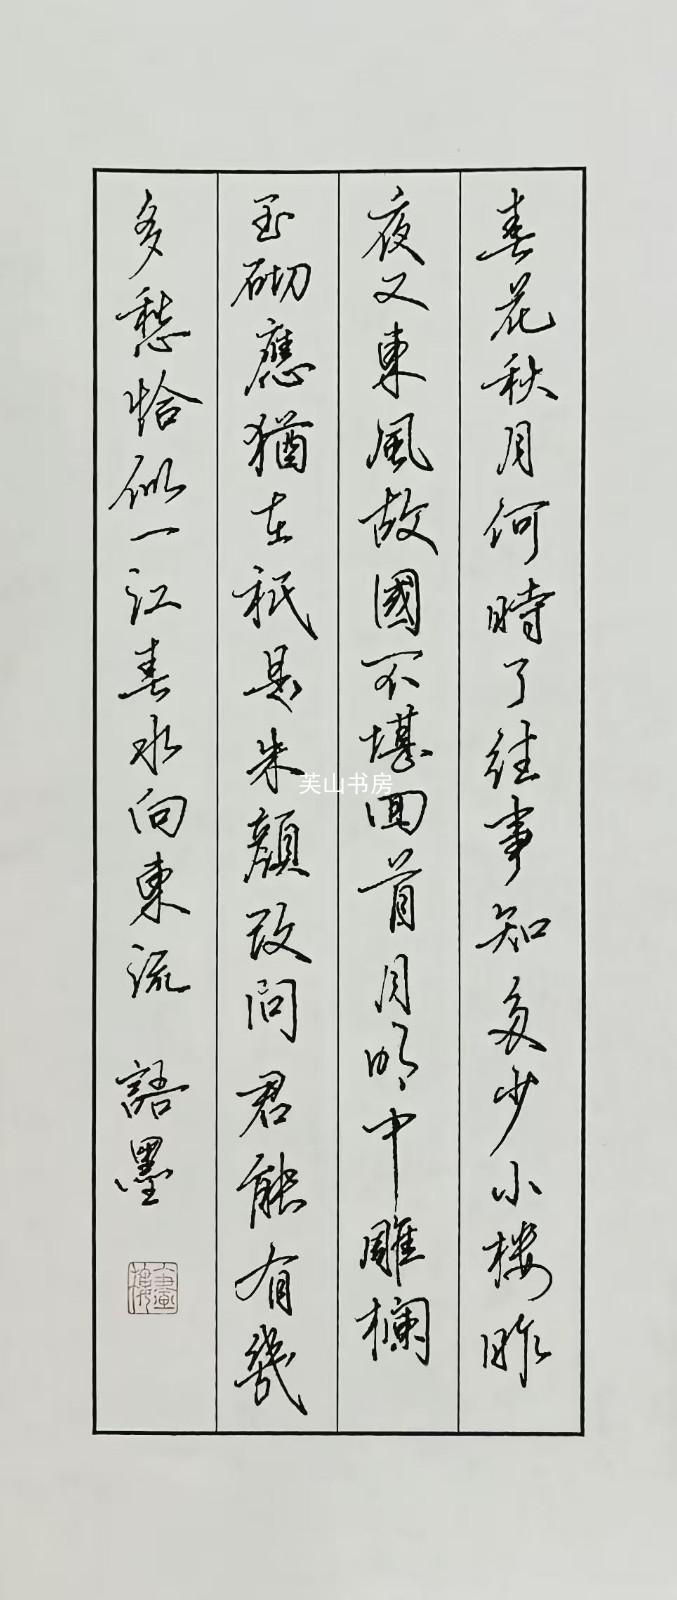 春花秋月何時了往事知多少小樓昨
夜又東風故國不堪回首月明中雕欄
玉砌應猶在祇是朱顏改問君能有幾
多愁恰似一江春水向東流 語墨
芙山书房